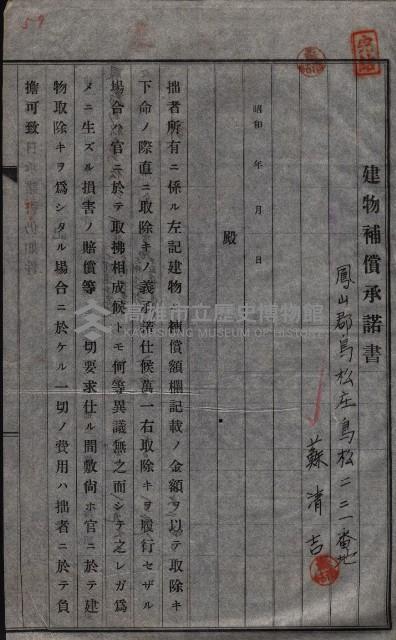 59
建物補償承諾書
鳳山郡鳥松庄鳥松二二一番地
蘇清吉
昭和　年　月　日
殿
拙者所有ニ係ル左記建物補償額欄記載ノ金額ヲ以テ取除キ
下命ノ際直ニ取除キノ義承諾仕候萬一右取除キヲ履行セザル
場合ハ官ニ於テ取拂相成候トモ何等異議無之而シテ之レガ爲
メニ生ズル損害ノ賠償等一切要求仕ル間敷尙ホ官ニ於テ建
物取除キヲ爲シタル場合ニ於ケル一切ノ費用ハ拙者ニ於テ負
擔可致
高雄市立歷史博物館
KAOHSIUNG MUSEUM OF HISTORY